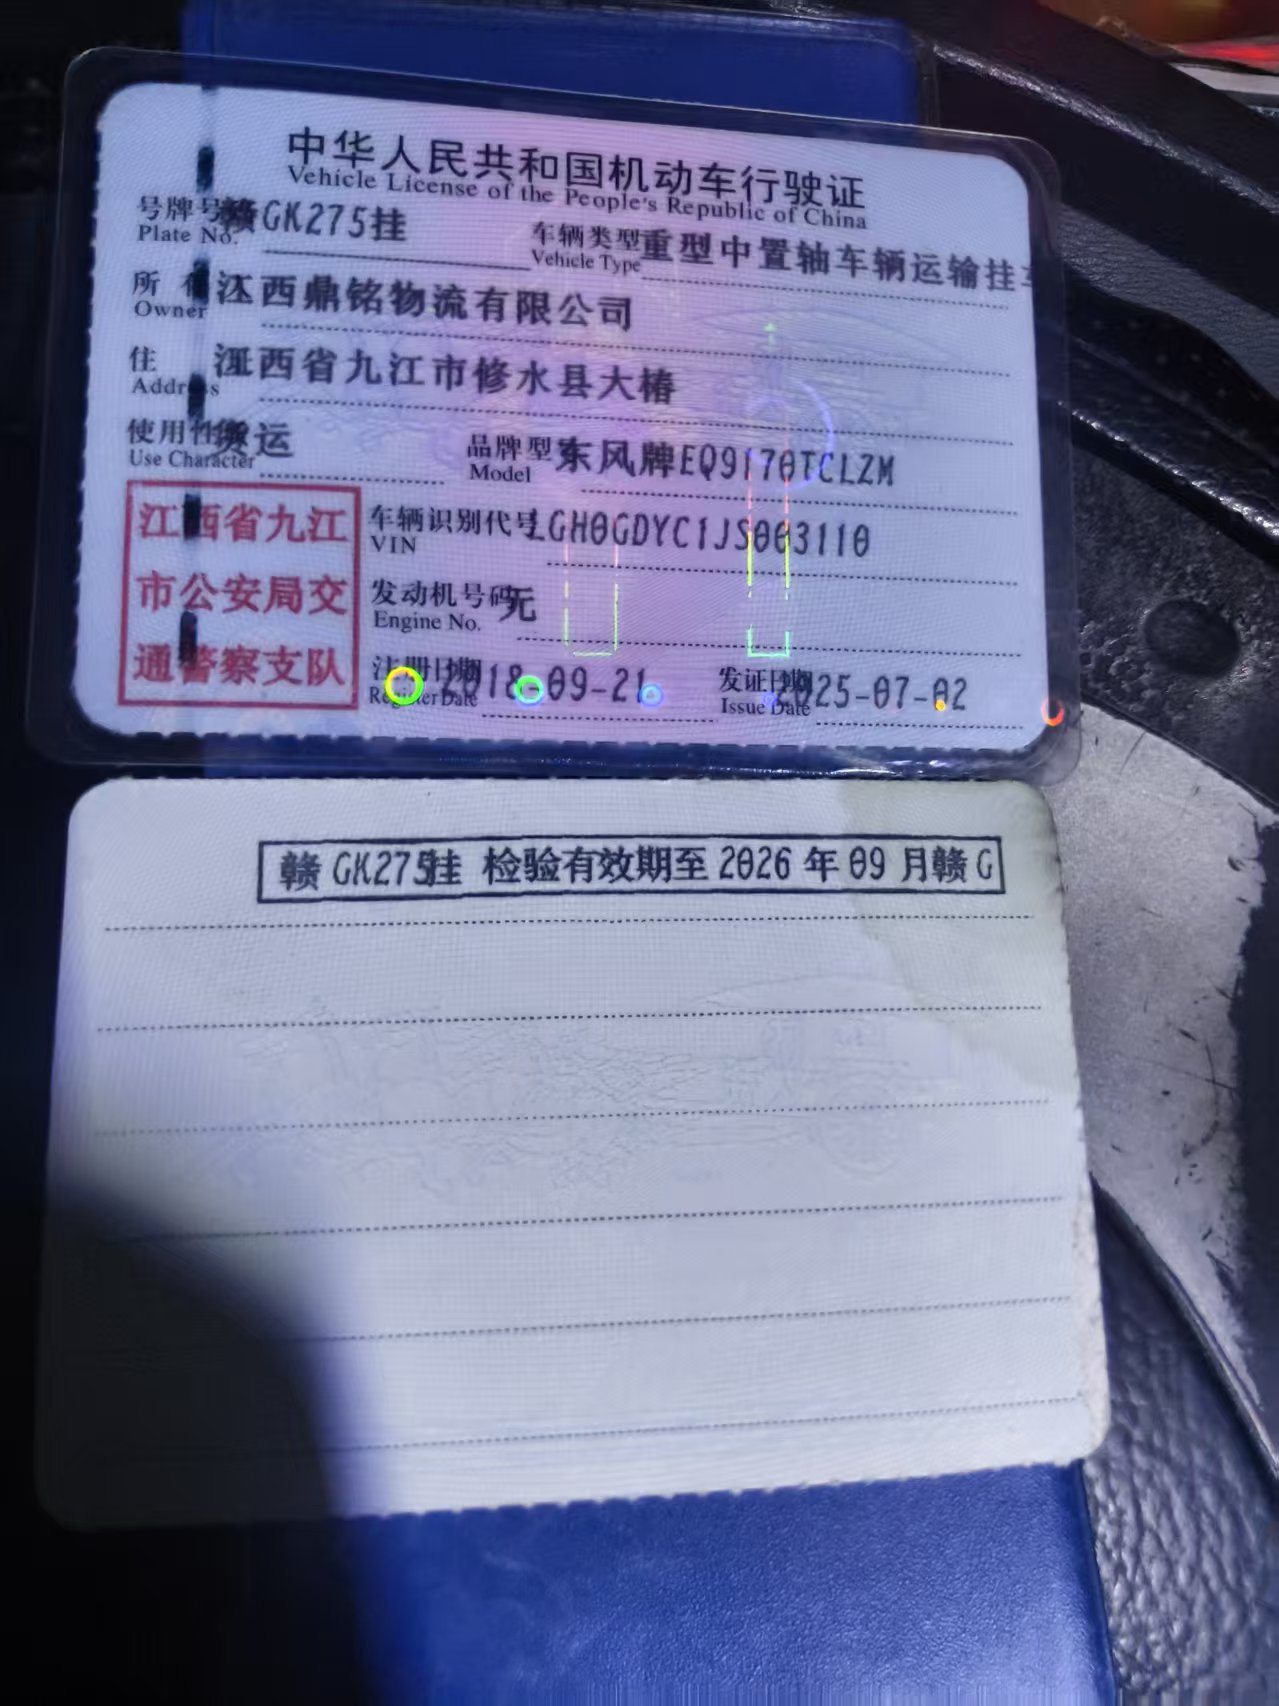 中华人民共和国机动车行驶证
Vehicle License of the People's Republic of China
号牌号 赣GK275挂
Plate No.
车辆类型 重型中置轴车辆运输挂车
Vehicle Type
所 江西鼎铭物流有限公司
Owner
住 江西省九江市修水县大椿
Address
使用性 货运
Use Character
品牌型 东风牌EQ9170TCLZM
Model
江西省九江
市公安局交
通警察支队
车辆识别代号 LGH0GDYC1JS003110
VIN
发动机号码 无
Engine No.
注册日期 18-09-21
Register Date
发证日期 25-07-02
Issue Date
赣 GK275挂 检验有效期至 2026 年 09 月赣 G